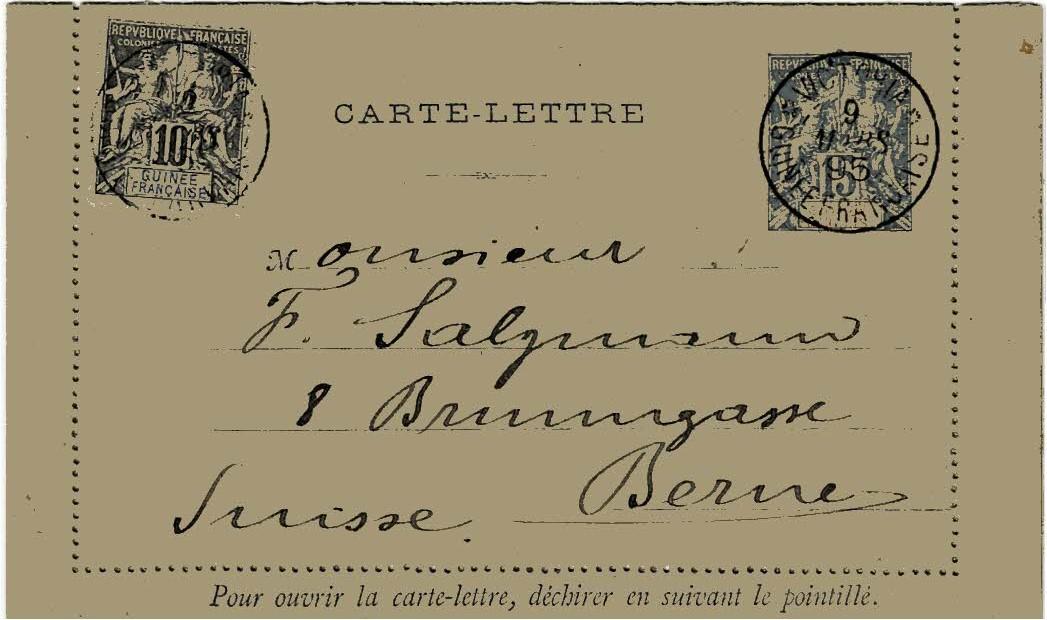 REPVBLIQVE FRANÇAISE
COLONIES POSTES
10
GUINÉE
FRANÇAISE
CARTE-LETTRE
REPVBLIQVE FRANÇAISE
15
9
MARS
95
GUINÉE FRANÇAISE
Monsieur
F. Salzmann
8 Brunngasse
Berne
Suisse.
Pour ouvrir la carte-lettre, déchirer en suivant le pointillé.